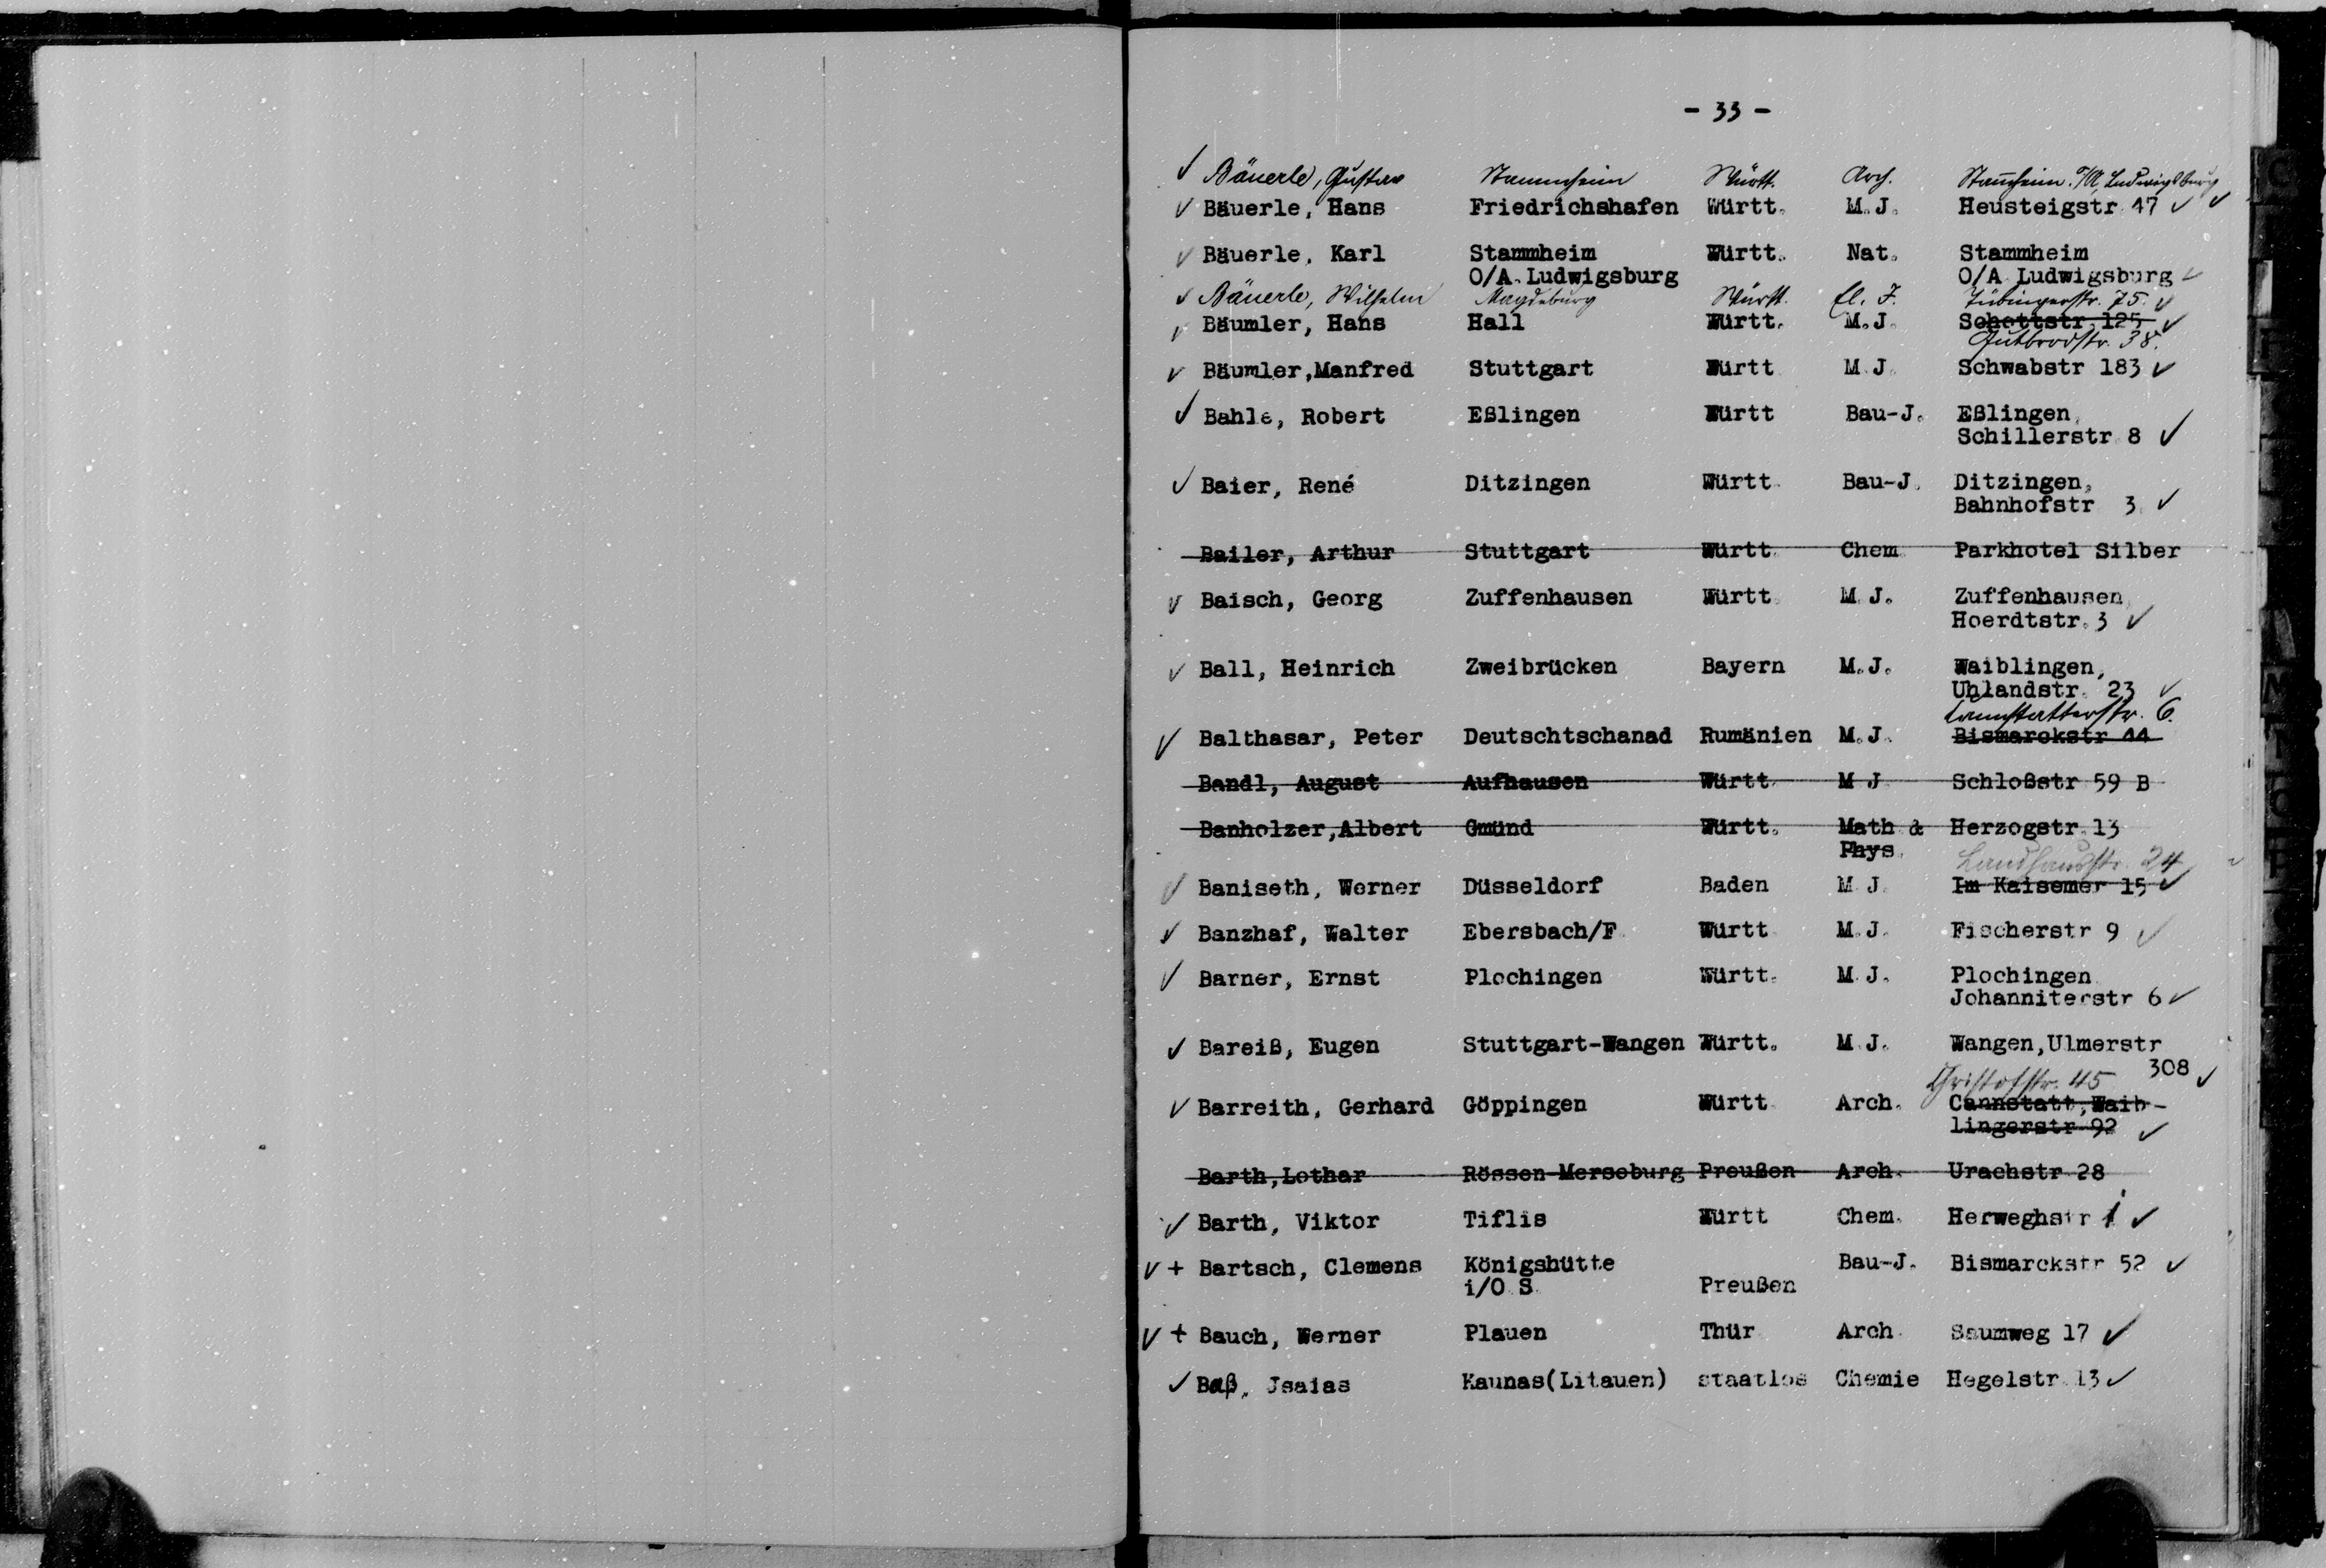 - 33 -
✓ Bäuerle, Gustav Stammheim Württ. Arch. Stammheim O/A Ludwigsburg
✓ Bäuerle, Hans Friedrichshafen Württ. M.J. Heusteigstr. 47 ✓ ✓
✓ Bäuerle, Karl Stammheim Württ. Nat. Stammheim
O/A.Ludwigsburg O/A Ludwigsburg ✓
✓ Bäuerle, Wilhelm Magdeburg Württ. El. J. Tübingerstr. 75. ✓
✓ Bäumler, Hans Hall Württ. M.J. Schottstr. 125 ✓
Gutbrodstr. 38.
✓ Bäumler,Manfred Stuttgart Württ M.J. Schwabstr 183 ✓
✓ Bahle, Robert Eßlingen Württ Bau-J. Eßlingen,
Schillerstr. 8 ✓
✓ Baier, René Ditzingen Württ. Bau-J. Ditzingen,
Bahnhofstr 3 ✓
Bailer, Arthur Stuttgart Württ. Chem. Parkhotel Silber
✓ Baisch, Georg Zuffenhausen Württ. M.J. Zuffenhausen,
Hoerdtstr. 3 ✓
✓ Ball, Heinrich Zweibrücken Bayern M.J. Waiblingen,
Uhlandstr. 23 ✓
Cannstatterstr. 6.
✓ Balthasar, Peter Deutschtschanad Rumänien M.J. Bismarckstr 44
Bandl, August Aufhausen Württ. M J Schloßstr 59 B
Banholzer,Albert Gmünd Württ. Math & Herzogstr. 13
Phys. Landhausstr. 24
✓ Baniseth, Werner Düsseldorf Baden M.J. Im Kaisemer 15 ✓
✓ Banzhaf, Walter Ebersbach/F. Württ. M.J. Fischerstr 9 ✓
✓ Barner, Ernst Plochingen Württ. M.J. Plochingen
Johanniterstr 6 ✓
✓ Bareiß, Eugen Stuttgart-Wangen Württ. M.J. Wangen,Ulmerstr
308 ✓
Christofstr. 45
✓ Barreith, Gerhard Göppingen Württ. Arch. Cannstatt,Waib-
lingerstr 92 ✓
Barth,Lothar Rössen-Merseburg Preußen Arch. Urachstr 28
✓ Barth, Viktor Tiflis Württ Chem. Herweghstr 1 ✓
✓ + Bartsch, Clemens Königshütte Bau-J. Bismarckstr 52 ✓
i/O.S. Preußen
✓ + Bauch, Werner Plauen Thür. Arch. Saumweg 17 ✓
✓ Baß, Jsaias Kaunas(Litauen) staatlos Chemie Hegelstr. 13 ✓